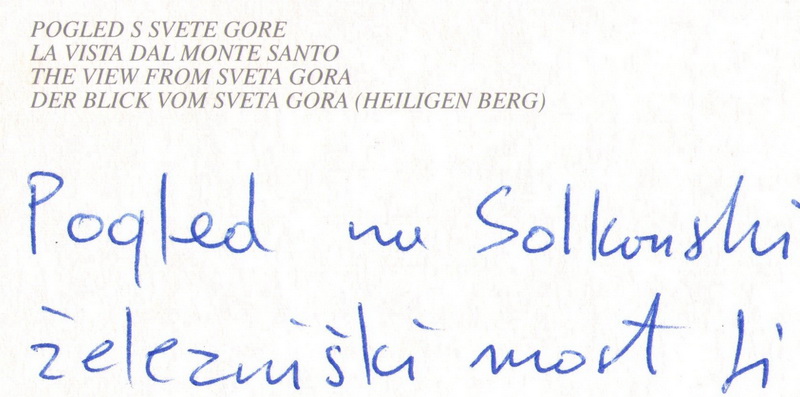 POGLED S SVETE GORE
LA VISTA DAL MONTE SANTO
THE VIEW FROM SVETA GORA
DER BLICK VOM SVETA GORA (HEILIGEN BERG)
Pogled na Solkanski
železniški most